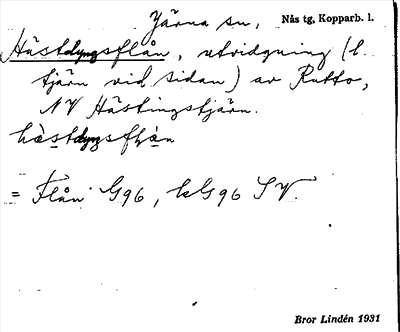 Järna sn, Nås tg, Kopparb. l.
Hästdyngsflån, utvidgning (l.
tjärn vid sidan) av Rutto,
NV Hästingstjärn.
hästdyngsflån
= Flån G96, kG96 SV.
Bror Lindén 1931